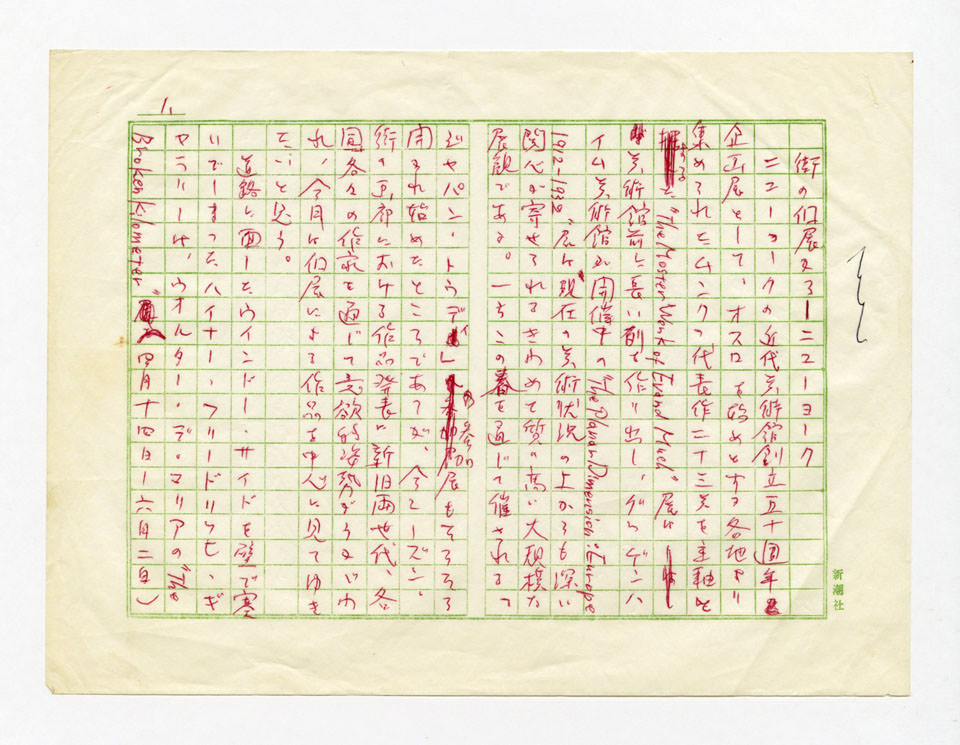 1.
街の個展から—ニューヨーク
ニューヨークの近代美術館創立五十周年
企画展として、オスロを始めとする各地より
集められたムンクの代表作二十三点を主軸と
する "The Master Work of Edvard Much" 展は
美術館前に長い列を作り出し、グッゲンハ
イム美術館が開催中の "The Planar Dimension: Europe
1912-1932" 展は現在の美術状況の上からも深い
関心が寄せられるきわめて質の高い大規模な
展観である。一方この春を通じて催される
ジャパン・トゥデイ」の参加展もそろそろ
開られ始めたところであるが、今シーズン、
街の画廊における作品発表に新旧両世代、各
国各々の作家を通じて意欲的姿勢がうかがわ
れ、今月は個展による作品を中心に見てゆき
たいと思う。
道路に面したウインドー・サイドを壁で塞
いでしまったハイナー・フリードリッヒ・ギ
ャラリーは、ウオルター・デ・マリアの "The
Broken Kilometer" (四月十四日—六月二日)
新潮社